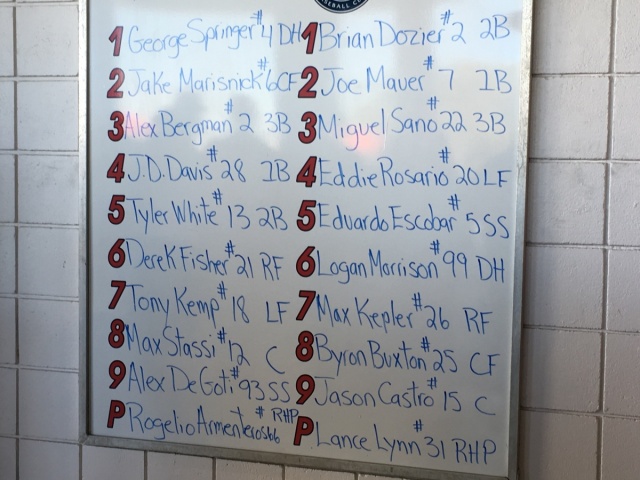 BASEBALL CL
1 George Springer #4 DH
2 Jake Marisnick #6 CF
3 Alex Bergman #2 3B
4 J.D. Davis #28 1B
5 Tyler White #13 2B
6 Derek Fisher #21 RF
7 Tony Kemp #18 LF
8 Max Stassi #12 C
9 Alex DeGoti #93 SS
P Rogelio Armenteros #66 RHP
1 Brian Dozier #2 2B
2 Joe Mauer #7 1B
3 Miguel Sano #22 3B
4 Eddie Rosario #20 LF
5 Eduardo Escobar #5 SS
6 Logan Morrison #99 DH
7 Max Kepler #26 RF
8 Byron Buxton #25 CF
9 Jason Castro #15 C
P Lance Lynn #31 RHP